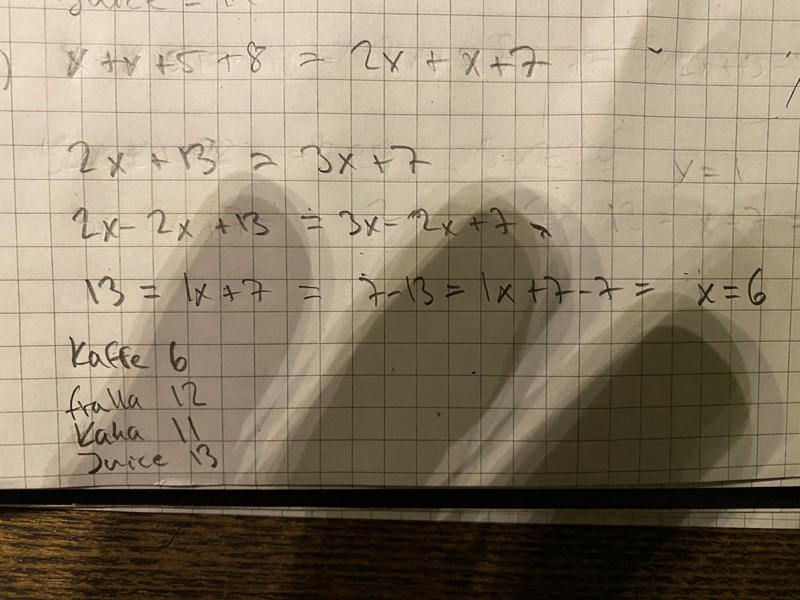 x + x + 5 + 8 = 2x + x + 7
2x + 13 = 3x + 7
y = 1
2x - 2x + 13 = 3x - 2x + 7
13 = 1x + 7 = 7 - 13 = 1x + 7 - 7 = x = 6
Kaffe 6
fralla 12
Kaka 11
Juice 13